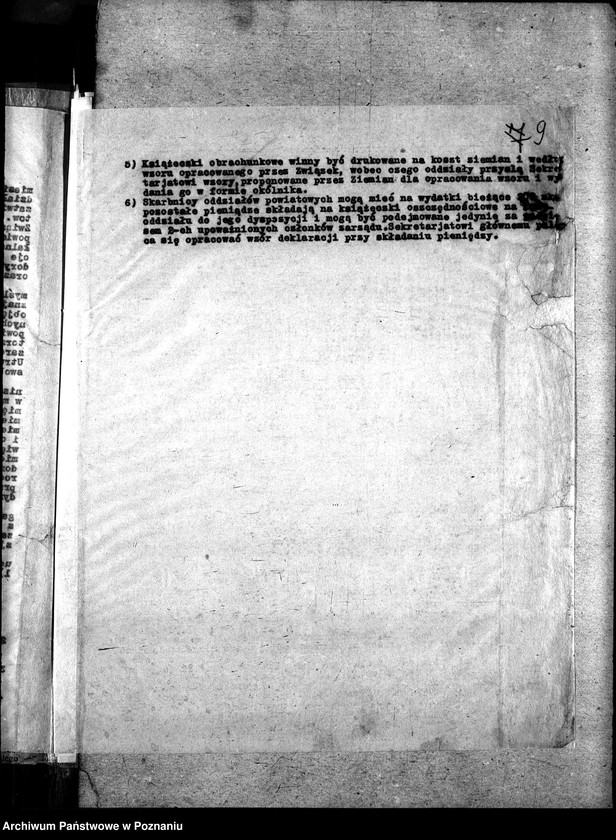 9
5) Książeczki obrachunkowe winny być drukowane na koszt ziemian i według
wzoru opracowanego przez Związek, wobec czego oddziały przyślą Sekre
tarjatowi wzory, proponowane przez Ziemian dla opracowania wzoru i wy
dania go w formie okólnika.
6) Skarbnicy oddziałów powiatowych mogą mieć na wydatki bieżące
pozostałe pieniądze składają na książeczki oszczędnościowe na
oddziału do jego dyspozycji i mogą być podejmowane jedynie za
sem 2-ch upoważnionych członków zarządu. Sekretarjatowi głównemu
ca się opracować wzór deklaracji przy składaniu pieniędzy.
Archiwum Państwowe w Poznaniu